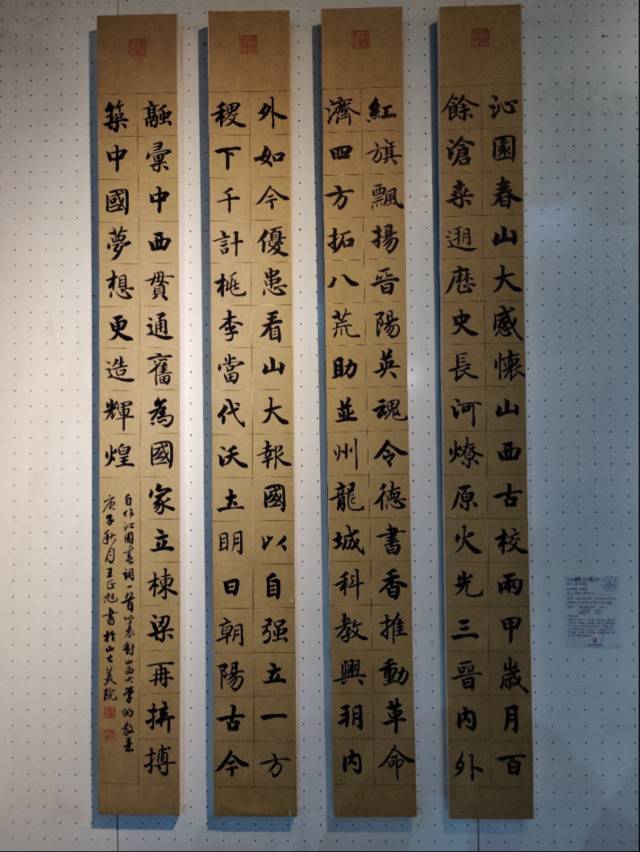 沁園春山大感懷山西古校兩甲歲月百
餘滄桒遡歷史長河燎原火光三晉内外
紅旗飄揚晉陽英魂令德書香推動革命
濟四方拓八荒助並州龍城科教興内
外如今優患看山大報國以自强立一方
稷下千計桃李當代沃土眀日朝陽古今
融彙中西貫通舊為國家立棟梁再擠搏
築中國夢想更造輝煌
自作沁園春詞一首以表對山西大學的敬意
庚子秋月王正旭書於山大美院